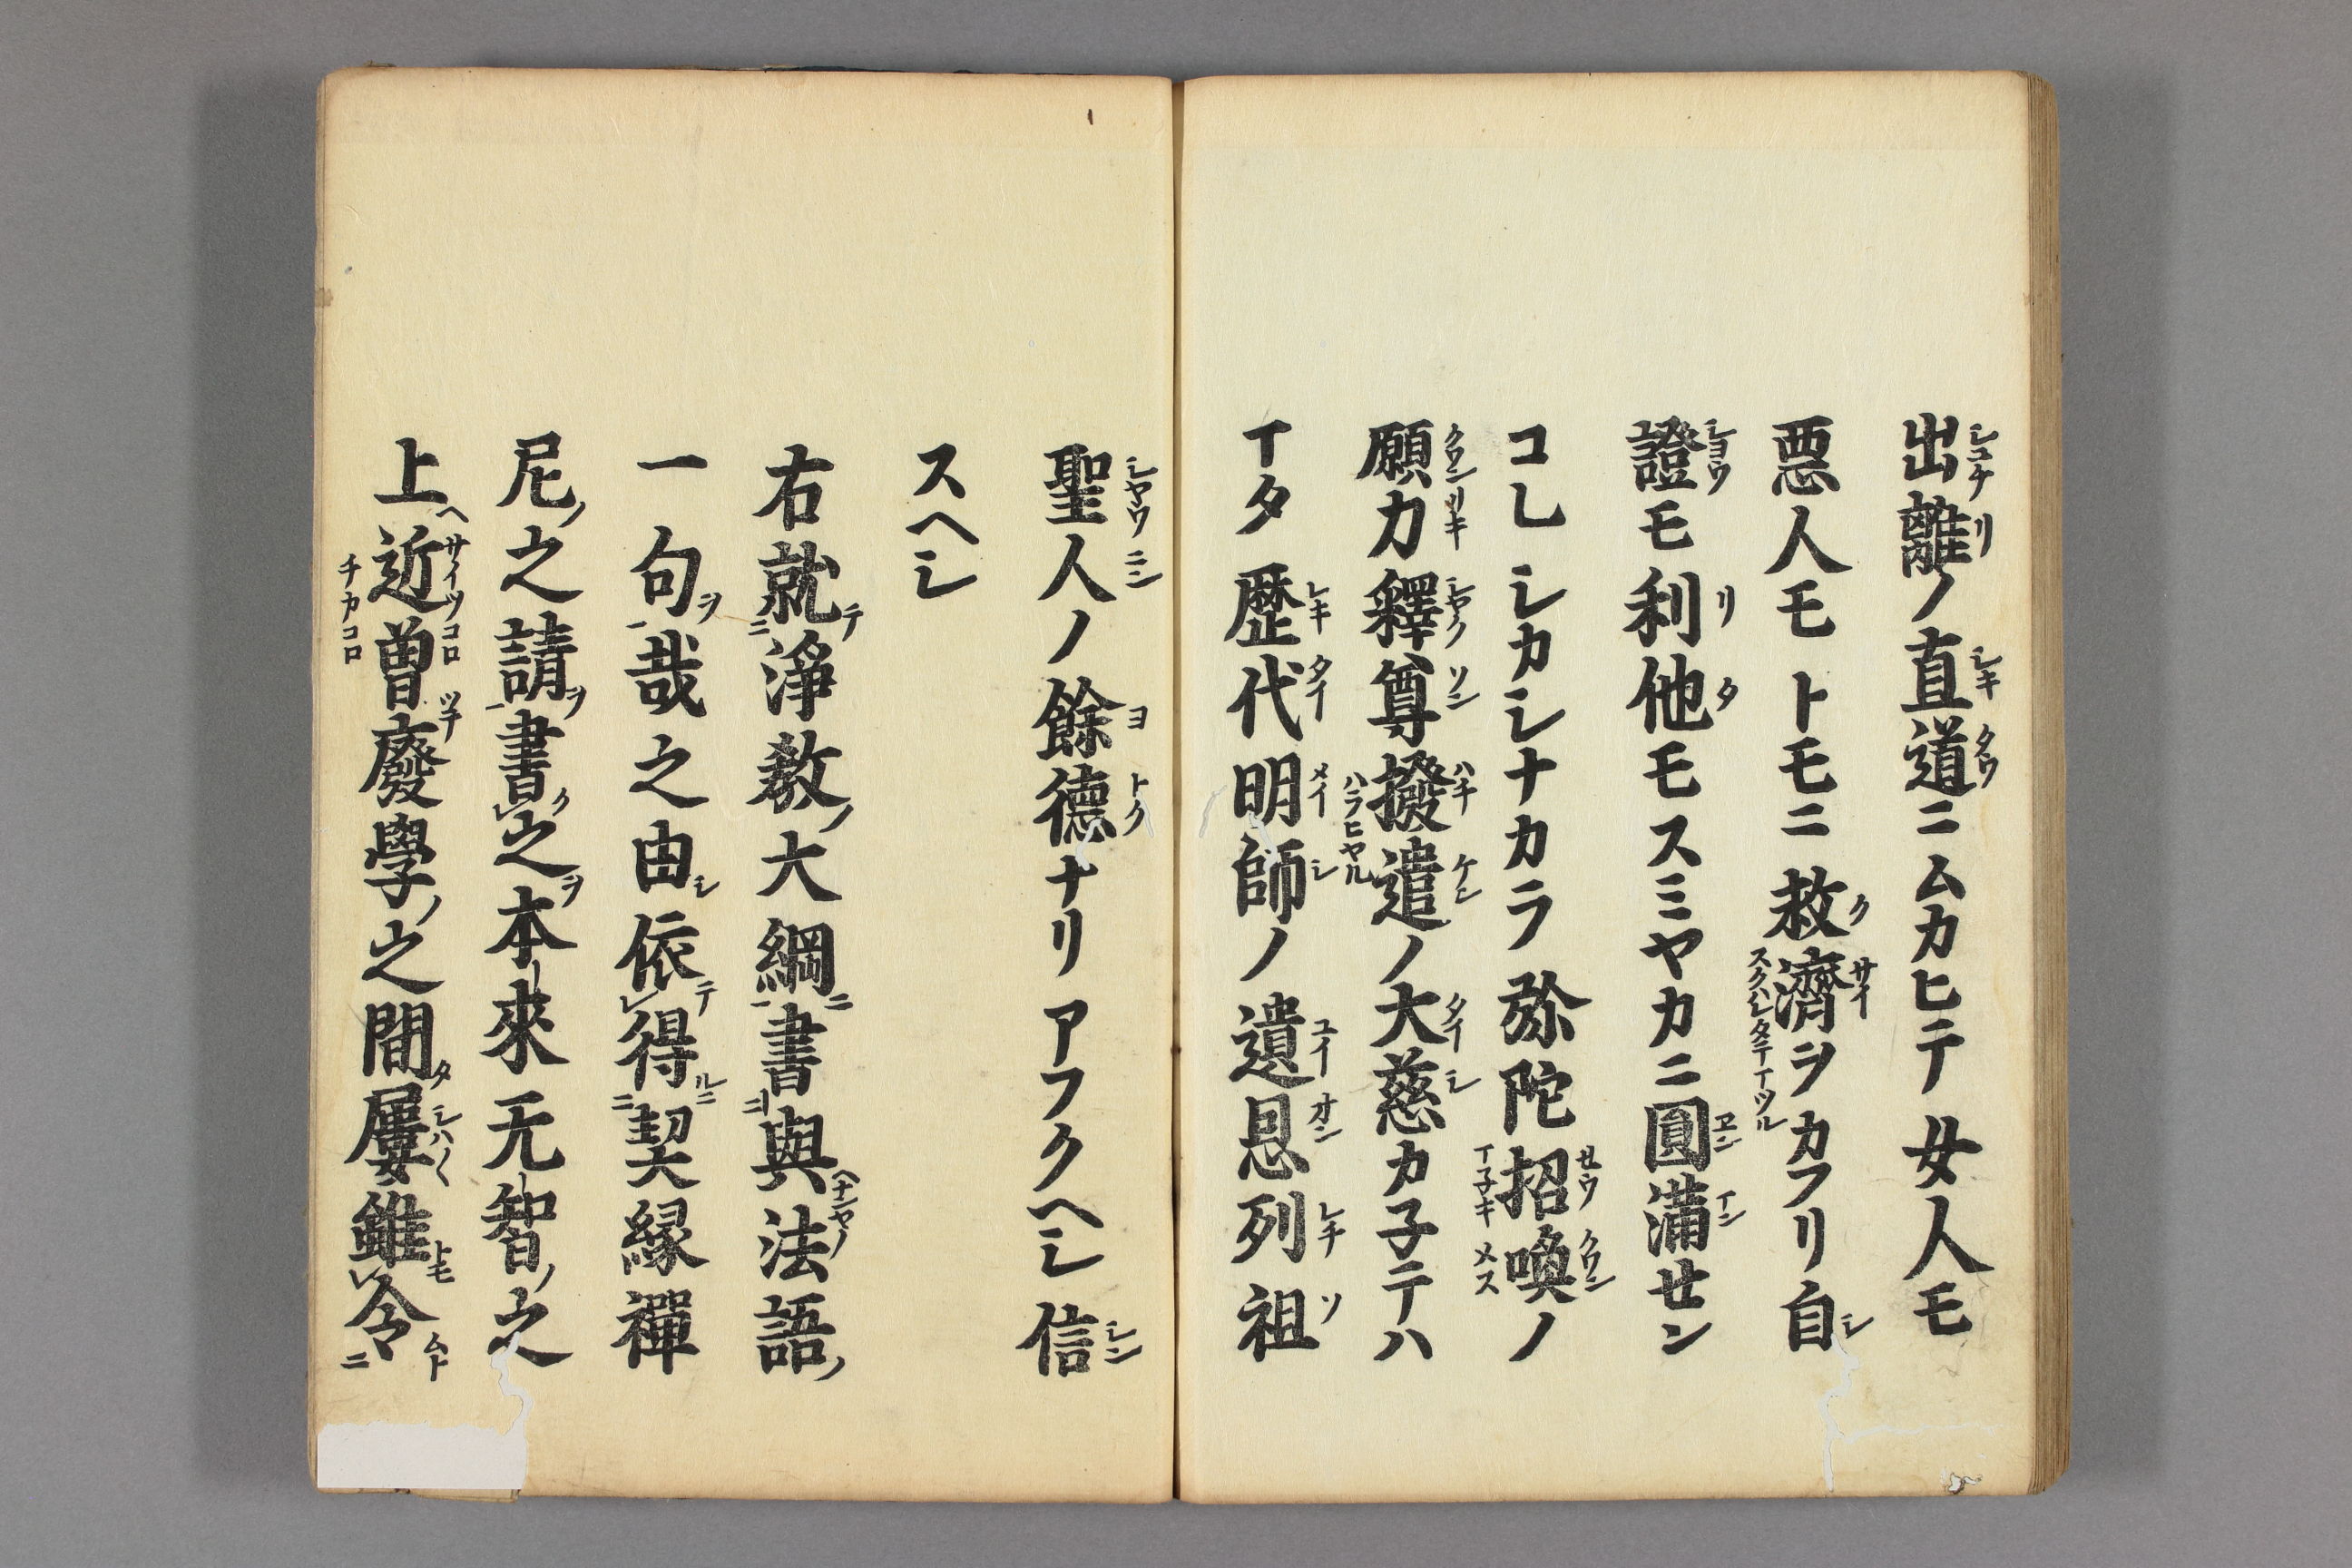 出離ノ直道ニムカヒテ女人モ
悪人モトモニ救濟ヲカフリ自
證モ利他モスミヤカニ圓滿セン
コレシカシナカラ弥陀招喚ノ
願力釋尊撥遣ノ大慈カ子テハ
イタ歴代明師ノ遺恩列祖
聖人ノ餘德ナリアフクヘシ信
スヘシ
右就淨教大綱書與法語
一句哉之由依得契縁禪
尼之請書之本來无智之
上近曽廢學之間屢雖令